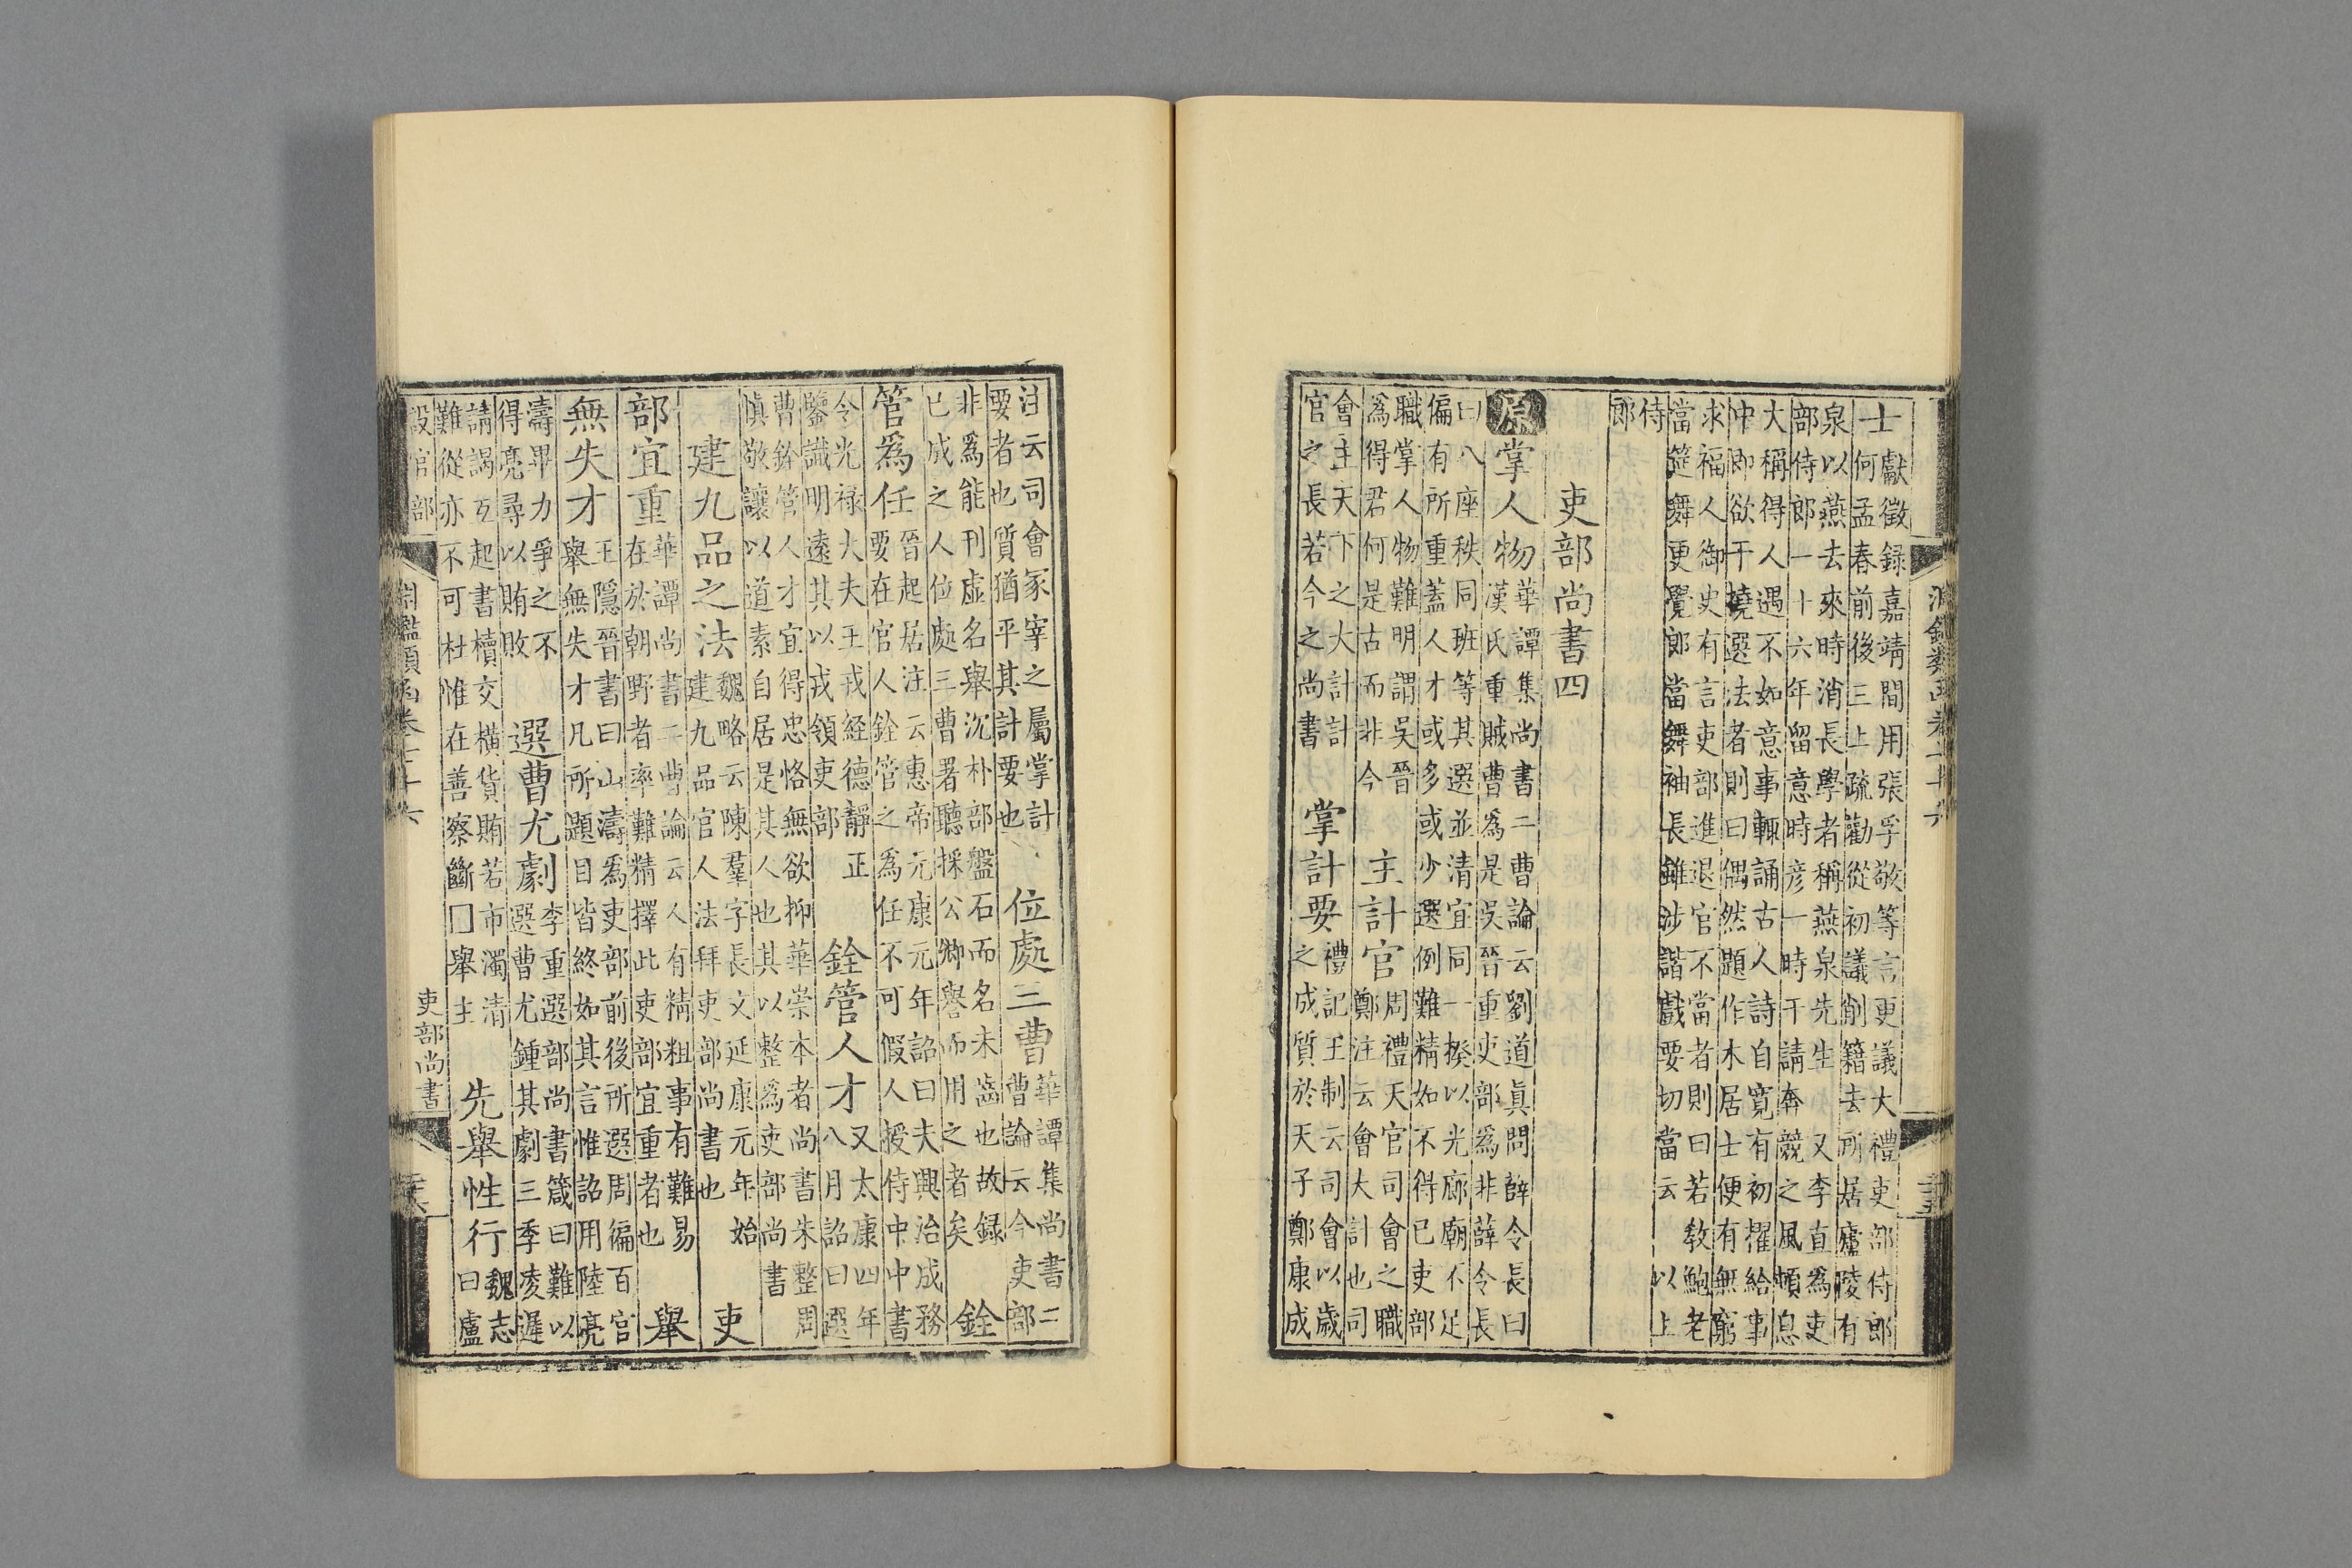 士
獻徵録嘉靖間用張孚敬等言更議大禮吏部侍郎
何孟春前後三上疏勸從初議削籍去所居廬陵有
泉以燕去來時消長學者稱燕泉先生 又李直為吏
部侍郎一十六年留意時彥一時干請奔競之風頓息
大稱得人遇不如意事輒誦古人詩自寛有初擢給事
中即欲干撓選法者則曰偶然題作木居士便有無窮
求福人御史有言吏部進退官不當者則曰若教鮑老
當筵舞更覺郎當舞袖長雖涉諧戲要切當云 以上
侍
郎
吏部尚書四
原 掌人物
華譚集尚書二曹論云劉道眞問薛令長曰
漢氏重賊曹為是吳晉重吏部為非薛令長
曰八座秩同班等其選並清宜同一揆以光廊廟不足
偏有所重蓋人才或多或少選例難精如不得已吏部
職掌人物難明謂吳晉
為得君何是古而非今
主計官
周禮天官司會之職
鄭注云會大計也司
會主天下之大計計
官之長若今之尚書
掌計要
禮記王制云司會以歲
之成質於天子鄭康成
注云司會冢宰之屬掌計
要者也質猶平其計要也
位處三曹
華譚集尚書二
曹論云今吏部
非為能刊虛名舉沉朴部盤石而名未齒也故録
已成之人位處三曹署聽採公卿譽而用之者矣
銓
管為任
晉起居注云惠帝元康元年詔曰夫興治成務
要在官人銓管之為任不可假人授侍中中書
令光祿大夫王戎経德靜正
鑒識明遠其以戎領吏部
銓管人才
又太康四年
八月詔曰選
曹銓管人才宜得忠恪無欲抑華崇本者尚書朱整周
慎敬讓以道素自居是其人也其以整為吏部尚書
建九品之法
魏略云陳羣字長文延康元年始
建九品官人法拜吏部尚書也
吏
部宜重
華譚尚書二曹論云人有精粗事有難易
在於朝野者率難精擇此吏部宜重者也
舉
無失才
王隱晉書曰山濤為吏部前後所選周徧百官
舉無失才凡所題目皆終如其言惟詔用陸亮
濤畢力爭之不
得亮尋以賄敗
選曹尤劇
李重選部尚書箴曰難以
選曹尤鍾其劇三季凌遲
請謁互起書牘交橫貨賄若市濁清
難從亦不可杜惟在善察斷囗舉主
先舉性行
魏志
曰盧
設官部
淵鑑類函卷六十六
吏部尚書